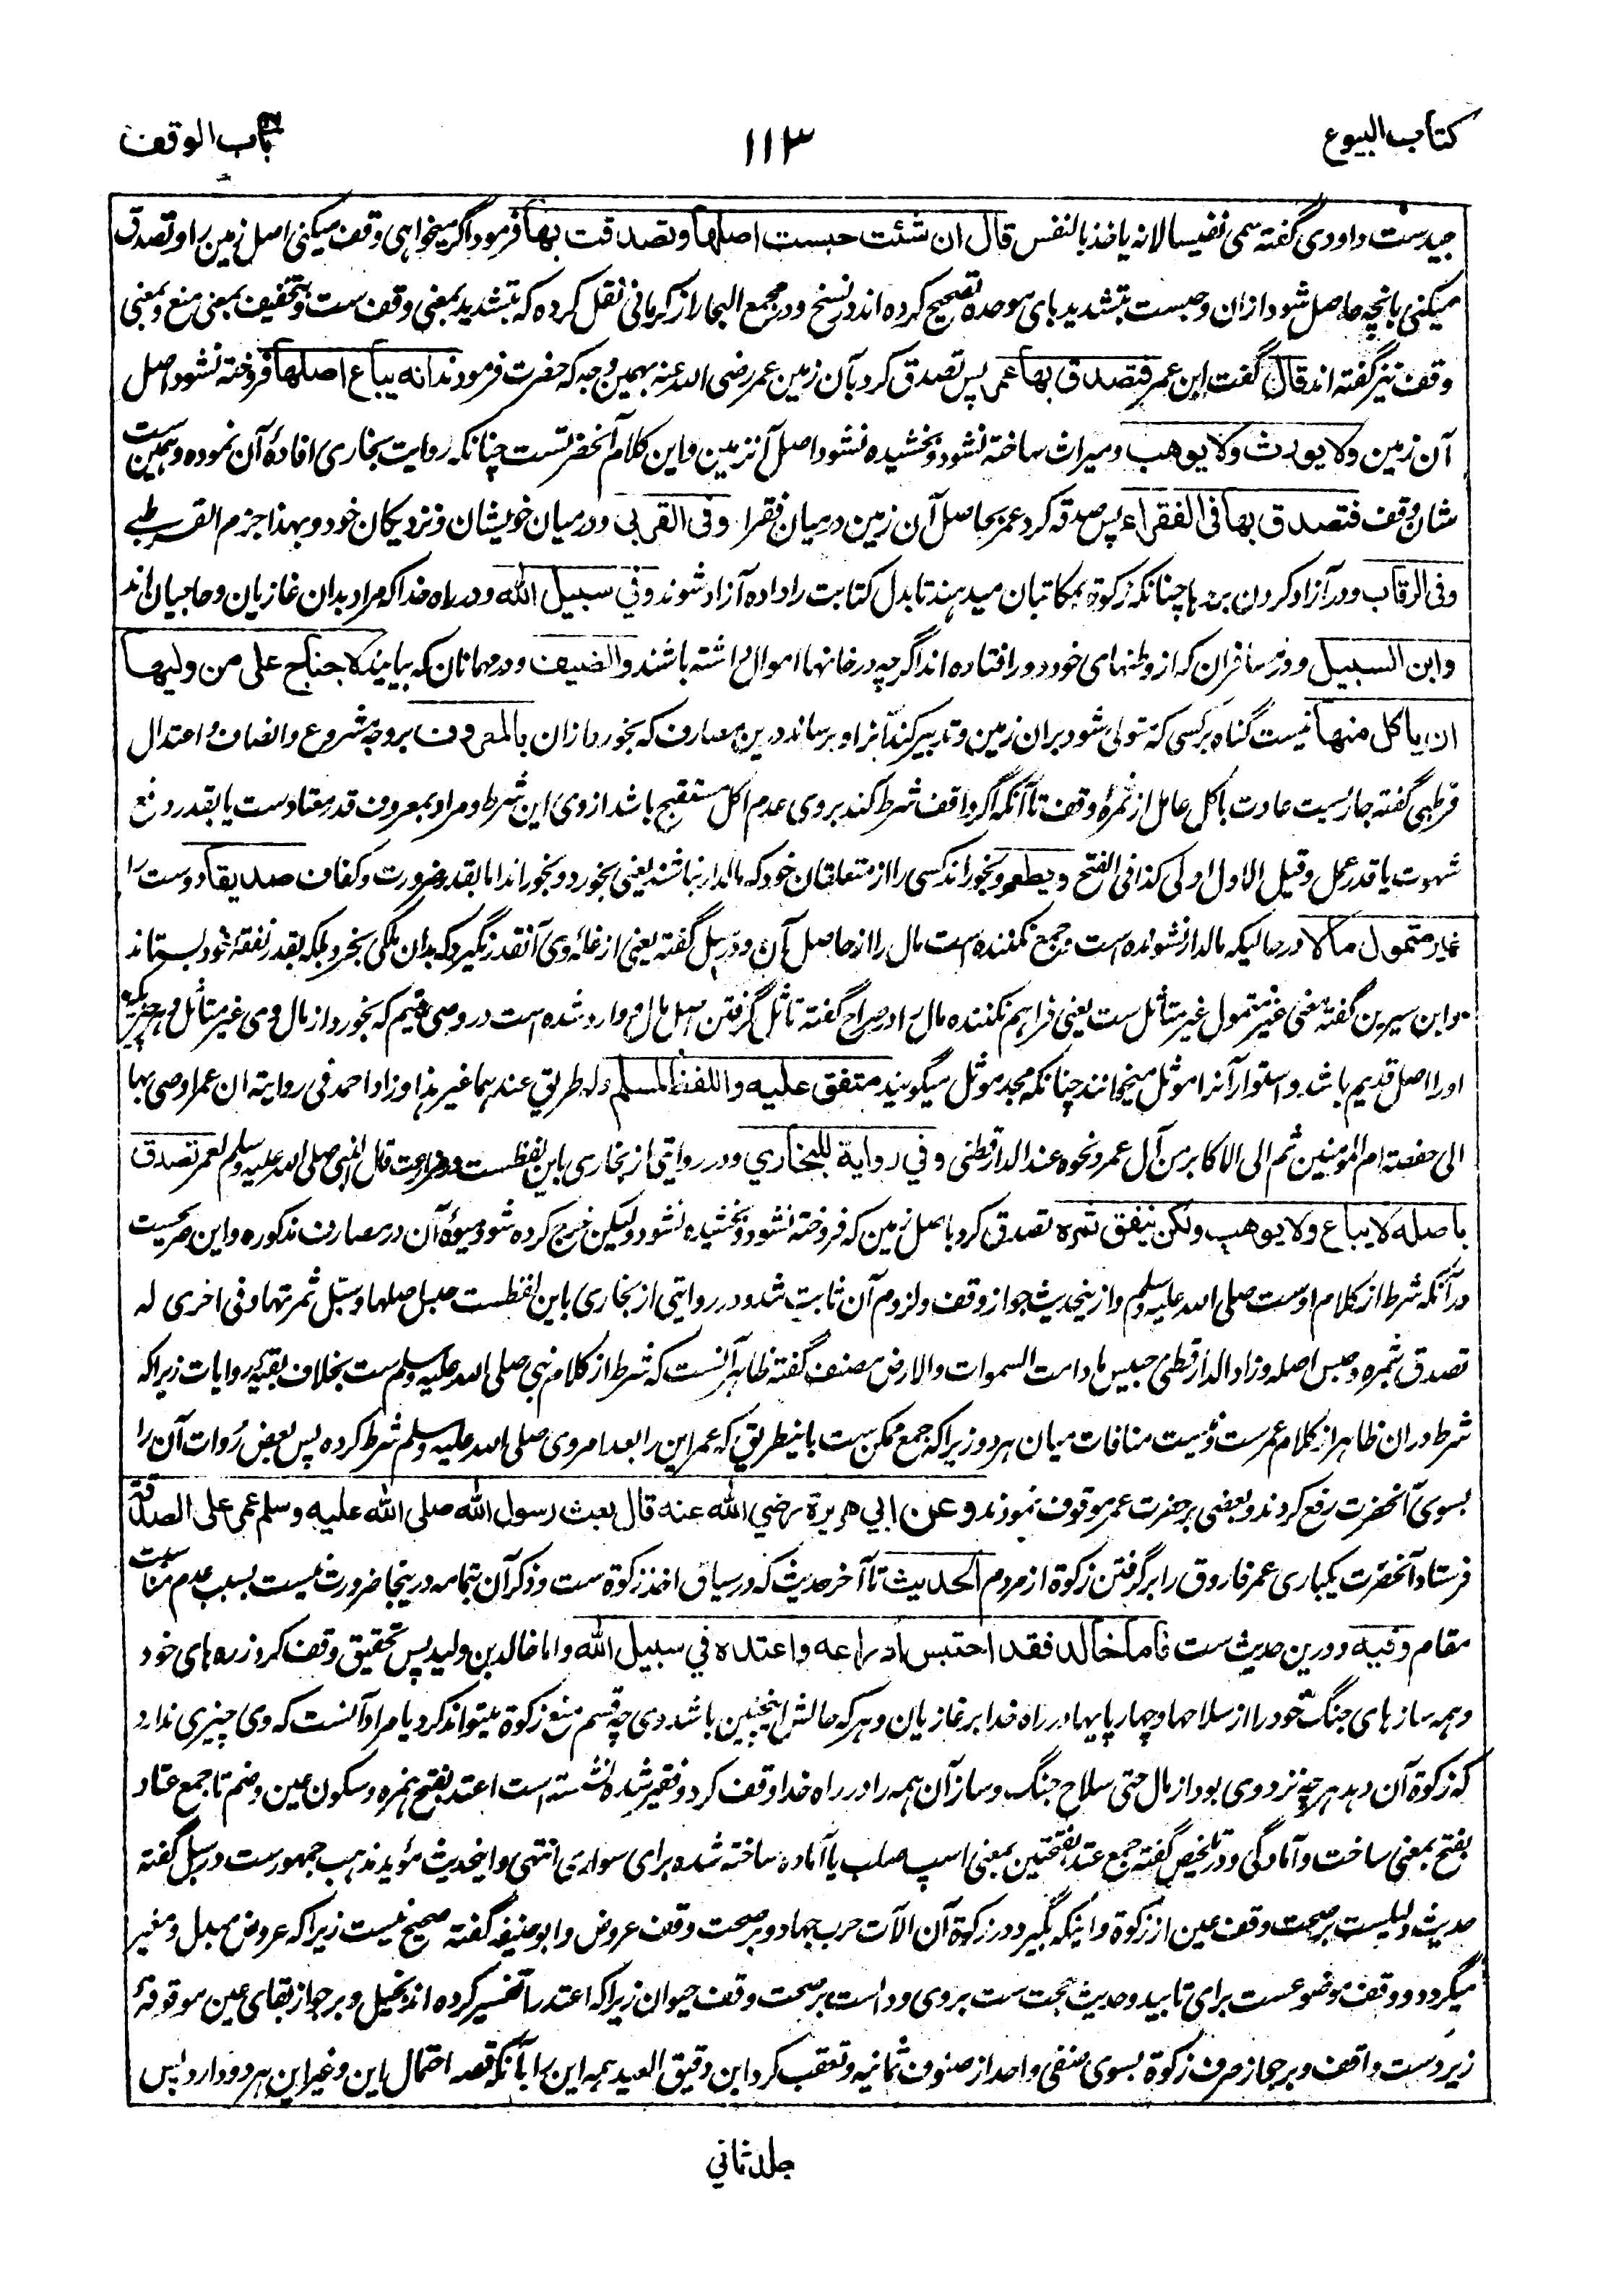 کتاب البیوع
۱۱۳
باب الوقف
جیدست داودی گفته سمی نفیسا لانه یاخذ بالنفس قال ان شئت حبست اصلها وتصدقت بها فرمود اگر میخواهی وقف میکنی اصل زمین را و تصدق
میکنی بانچه حاصل شود ازان و حبست بتشدید بای موحده تصحیح کرده اند در نسخ و در مجمع البحار از کرمانی نقل کرده که بتشدید بمعنی وقف ست و بتخفیف بمعنی منع و بمعنی
وقف نیز گفته اند قال گفت ابن عمر فتصدق بها عمر پس تصدق کرد بآن زمین عمر رضی الله عنه بهمین وجه که حضرت فرمودند انه یباع اصلها فروخته نشود اصل
آن زمین ولا یورث ولا یوهب و میراث ساخته نشود و بخشیده نشود اصل آنزمین و این کلام آنحضرتست چنانکه روایت بخاری افادهٔ آن نموده و همین ست
شان وقف فتصدق بها فی الفقراء پس صدقه کرد عمر بحاصل آن زمین درمیان فقرا وفی القربی و درمیان خویشان و نزدیکان خود و بهذا جزم القرطبے
وفی الرقاب و در آزاد کردن برده‌ها چنانکه زکوة بمکاتبان میدهند تا بدل کتابت را داده آزاد شوند وفی سبیل الله و در راه خدا که مراد بدان غازیان و حاجیان اند
وابن السبیل و در مسافران که از وطنهای خود دور افتاده اند اگرچه در خانها اموال داشته باشند والضیف و در مهمانان که بیایند لا جناح علی من ولیها
ان یاکل منها نیست گناه بر کسی که متولی شود بران زمین و تدبیر کند آنرا و برساند درین مصارف که بخورد ازان بالمعروف بر وجه مشروع و انصاف و اعتدال
قرطبی گفته جاریست عادت باکل عامل از ثمرهٔ وقف تا آنکه اگر واقف شرط کند بروی عدم اکل مستقبح باشد از وی این شرط و مراد بمعروف قدر معتادست یا بقدر دفع
شهوت یا قدر عمل وقیل الاول اولی کذا فی الفتح ویطعم و بخوراند کسی را از متعلقان خود که مالدار نباشند یعنی بخورد و بخوراند اما بقدر ضرورت و کفاف صدیقا دوست را
غیر متمول مالا در حالیکه مالدار نشونده است و جمع نکننده است مال را از حاصل آن و در سبل گفته یعنی از غلهٔ وی آنقدر نگیرد که بدان ملکی بخرد بلکه بقدر نفقهٔ خود بستاند
وابن سیرین گفته معنی غیر متمول غیر متأثل ست یعنی فراهم نکننده مال را در صراح گفته تأثل گرفتن اصل مال و وارد شده است در وصی یتیم که بخورد از مال وی غیر متأثل و هر چیزیکه
او را اصل قدیم باشد و استوار آنرا موثل میخوانند چنانکه مجد موثل میگویند متفق علیه واللفظ لمسلم وله طریق عندهما غیر هذا وزاد احمد فی روایته ان عمر اوصی بها
الی حفصة ام المؤمنین ثم الی الاکابر من آل عمر ونحوه عند الدارقطنی وفی روایة للبخاری و در روایتی از بخاری باین لفظ ست قال النبی صلی الله علیه وسلم لعمر تصدق
باصله لا یباع ولا یوهب ولکن ینفق ثمره تصدق کرد باصل زمین که فروخته نشود و بخشیده نشود ولیکن خرج کرده شود میوهٔ آن در مصارف مذکوره و این صریحست
در آنکه شرط از کلام اوست صلی الله علیه وسلم و ازینحدیث جواز وقف و لزوم آن ثابت شد و در روایتی از بخاری باین لفظست حبس اصلها وسبّل ثمرتها وفی اخری له
تصدق بثمره وحبس اصله وزاد الدارقطنی حبیس مادامت السموات والارض مصنف گفته ظاهر آنست که شرط از کلام نبی صلی الله علیه وسلم ست بخلاف بقیهٔ روایات زیراکه
شرط دران ظاهر از کلام عمرست و نیست منافات میان هر دو زیراکه جمع ممکن ست باینطریق که عمر این را بعد امر وی صلی الله علیه وسلم شرط کرده پس بعض رُوات آن را
بسوی آنحضرت رفع کردند و بعضی بر حضرت عمر موقوف نمودند وعن ابی هریرة رضی الله عنه قال بعث رسول الله صلی الله علیه وسلم عمر علی الصدقة
فرستاد آنحضرت یکباری عمر فاروق را برگرفتن زکوة از مردم الحدیث تا آخر حدیث که در سیاق اخذ زکوة ست و ذکر آن بتمامه درینجا ضرورت نیست بسبب عدم مناسبت
مقام وفیه و درین حدیث ست فاما خالد فقد احتبس ادراعه واعتده فی سبیل الله و اما خالد بن ولید پس تحقیق وقف کرد زره‌های خود
و همه سازهای جنگ خود را از سلاحها و چهارپایها در راه خدا بر غازیان و هر که حالش اینچنین باشد وی چه قسم منع زکوة میتواند کرد یا مراد آنست که وی چیزی ندارد
که زکوة آن دهد هر چه نزد وی بود از مال حتی سلاح جنگ و ساز آن همه را در راه خدا وقف کرد و فقیر شده نشسته است اعتد بفتح همزه و سکون عین و ضم تا جمع عتاد
بفتح بمعنی ساخت و آمادگی و در تلخیص گفته جمع عتد بفتحتین بمعنی اسپ صلب یا آماده ساخته شده برای سواری انتهی و اینحدیث مؤید مذهب جمهورست در سبل گفته
حدیث دلیلست بر صحت وقف عین از زکوة و اینکه بگیرد در زکوة آن الآت حرب جهاد و بر صحت وقف عروض و ابوحنیفه گفته صحیح نیست زیراکه عروض مبدل و مغیر
میگردد و وقف موضوعست برای تابید و حدیث حجت ست بر وی و دال ست بر صحت وقف حیوان زیراکه اعتد را تفسیر کرده اند بخیل و بر جواز بقای عین موقوفهٔ
زیر دست واقف و بر جواز صرف زکوة بسوی صنفی واحد از صنوف ثمانیه و تعقب کرد ابن دقیق العید همه این را بآنکه قصه احتمال این و غیر این هر دو دارد پس
جلد ثانی